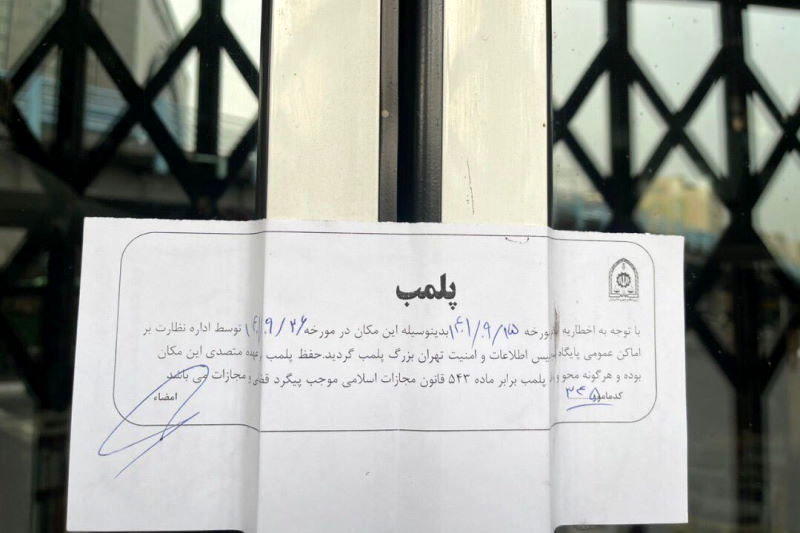 پلمب
با توجه به اخطاریه مورخه ۱۴۰۱/۹/۱۵ بدینوسیله این مکان در مورخه ۱۴۰۱/۹/۲۶ توسط اداره نظارت بر
اماکن عمومی پایگاه پلیس اطلاعات و امنیت تهران بزرگ پلمب گردید.حفظ پلمب بعهده متصدی این مکان
بوده و هرگونه محو پلمب برابر ماده ۵۴۳ قانون مجازات اسلامی موجب پیگرد و مجازات می باشد
کدمامور
امضاء